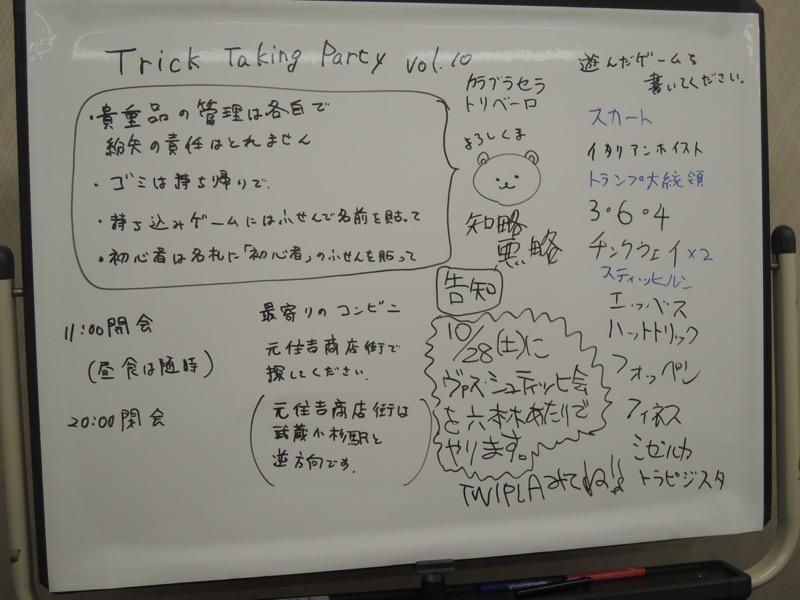 Trick Taking Party vol.10
・貴重品の管理は各自で
紛失の責任はとれません
・ゴミは持ち帰りで.
・持ち込みゲームにはふせんで名前を貼って
・初心者は名札に「初心者」のふせんを貼って
11:00開会
(昼食は随時)
20:00閉会
最寄りのコンビニ
元住吉商店街で
探してください.
元住吉商店街は
武蔵小杉駅と
逆方向です.
カラブラセラ
トリベーロ
よろしくま
知略
悪略
告知
10/28(土)に
ヴァス・シュティッヒ会
を六本木あたりで
やります。
TWIPLAみてね!!
遊んだゲームを
書いてください。
スカート
イタリアンホイスト
トランプ大統領
3・6・4
チンクウェイ×2
スティッヒルン
エッベス
ハットトリック
フォッペン
フィネス
ミゼルカ
トラピジスタ